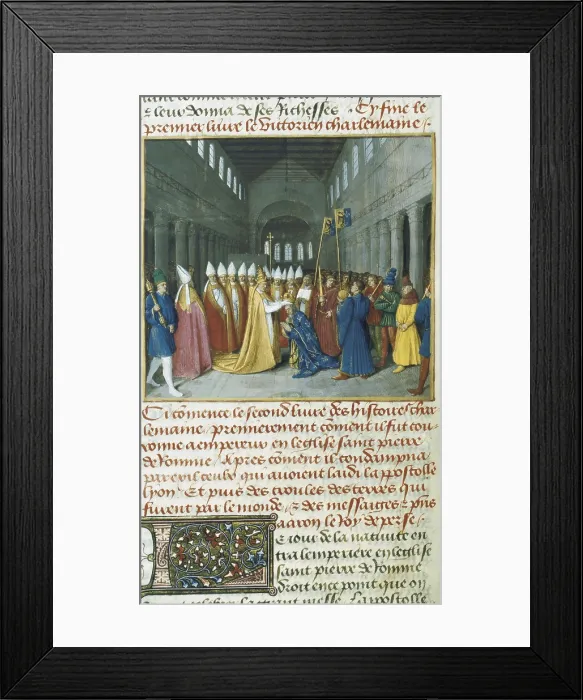 ⁊ leur donna de ses Richesses . Cy fine le
premier livre le victorien charlemaine .
Ci cōmence le second livre des histoires char
lemaine . premierement cōment il fut cou
ronne a empereur en leglise saint pierre
de Romme . Apres cōment il condampna
par exil ceulx qui avoient laidi lappostolle
lyon . Et puis des croules des terres qui
furent par le monde . ⁊ des messaiges ⁊ pn̄s
aaron le Roy de perse .
E iour de la nativite en
tra lemperiere en leglise
saint pierre de Romme
droit en ce point que on
la grant messe . lapostolle